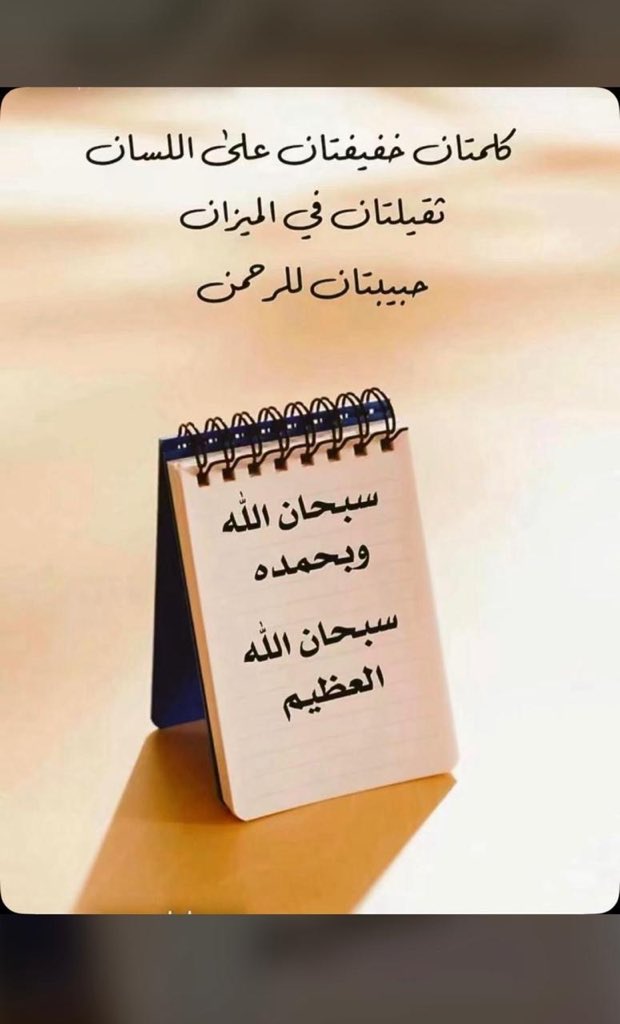 كلمتان خفيفتان على اللسان
ثقيلتان في الميزان
حبيبتان للرحمن
سبحان الله
وبحمده
سبحان الله
العظيم